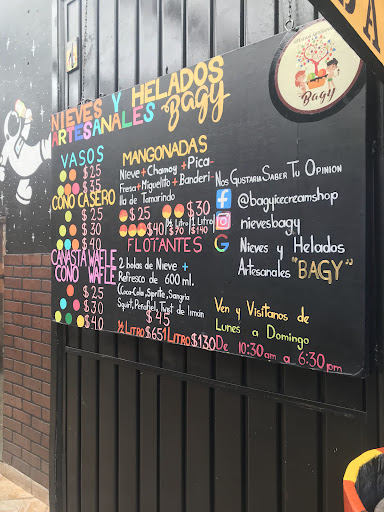 NIEVES Y HELADOS
ARTESANALES BAGY
BAGY
VASOS
$25
$35
CONO CASERO
$25
$30
$40
CANASTA WAFLE
CONO WAFLE
$25
$30
$40
MANGONADAS
Nieve + Chamoy + Pica-
Fresa + Miguelito + Banderi-
lla de Tamarindo
$25 $30
$40 ½ Litro $70 1 Litro $140
FLOTANTES
2 bolas de Nieve +
Refresco de 600 ml.
(Coca-Cola, Sprite, Sangria
Squirt, Peñafiel, Twist de limón
$45
½ LITRO $65 1 LITRO $130
Nos Gustaria Saber Tu Opinion
@bagyicecreamshop
nievesbagy
G Nieves y Helados
Artesanales "BAGY"
Ven y Visitanos de
Lunes a Domingo
De 10:30am a 6:30pm